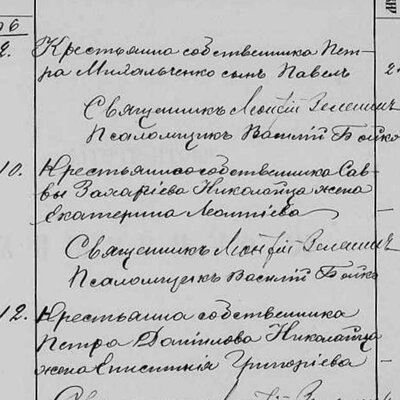 96
9. Крестьянина собственника Пет-
ра Михальченко сынъ Павелъ 2
Священникъ
Псаломщикъ Василій Бойко
10. Крестьянина собственника Сав-
вы Захаріева Николайца жена
Екатерина Леонтіева —
Священникъ
Псаломщикъ Василій Бойко
12. Крестьянина собственника
Петра Данилова Николайца
жена Епистинія Григоріева —